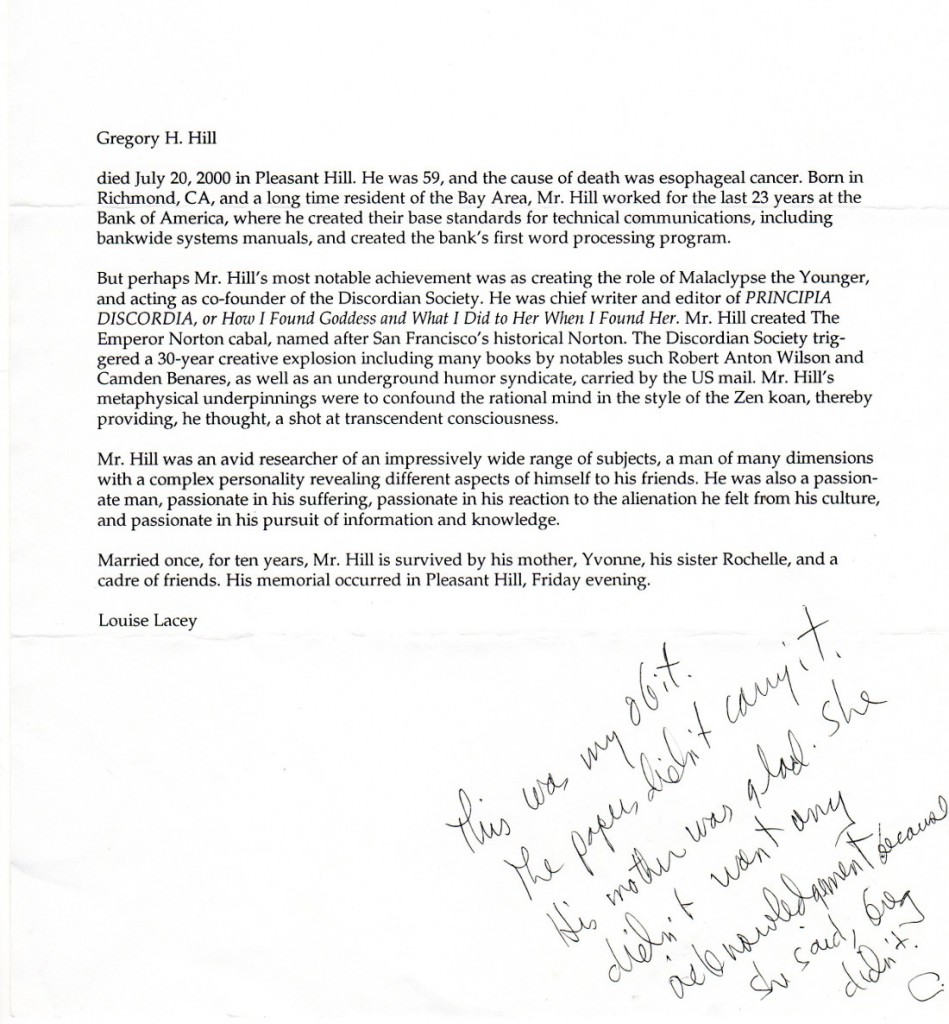 Gregory H. Hill
died July 20, 2000 in Pleasant Hill. He was 59, and the cause of death was esophageal cancer. Born in
Richmond, CA, and a long time resident of the Bay Area, Mr. Hill worked for the last 23 years at the
Bank of America, where he created their base standards for technical communications, including
bankwide systems manuals, and created the bank's first word processing program.
But perhaps Mr. Hill's most notable achievement was as creating the role of Malaclypse the Younger,
and acting as co-founder of the Discordian Society. He was chief writer and editor of PRINCIPIA
DISCORDIA, or How I Found Goddess and What I Did to Her When I Found Her. Mr. Hill created The
Emperor Norton cabal, named after San Francisco's historical Norton. The Discordian Society trig-
gered a 30-year creative explosion including many books by notables such Robert Anton Wilson and
Camden Benares, as well as an underground humor syndicate, carried by the US mail. Mr. Hill's
metaphysical underpinnings were to confound the rational mind in the style of the Zen koan, thereby
providing, he thought, a shot at transcendent consciousness.
Mr. Hill was an avid researcher of an impressively wide range of subjects, a man of many dimensions
with a complex personality revealing different aspects of himself to his friends. He was also a passion-
ate man, passionate in his suffering, passionate in his reaction to the alienation he felt from his culture,
and passionate in his pursuit of information and knowledge.
Married once, for ten years, Mr. Hill is survived by his mother, Yvonne, his sister Rochelle, and a
cadre of friends. His memorial occurred in Pleasant Hill, Friday evening.
Louise Lacey
This was my obit.
The papers didn't carry it.
His mother was glad. She
didn't want any
acknowledgement because
she said, Greg
didn't.